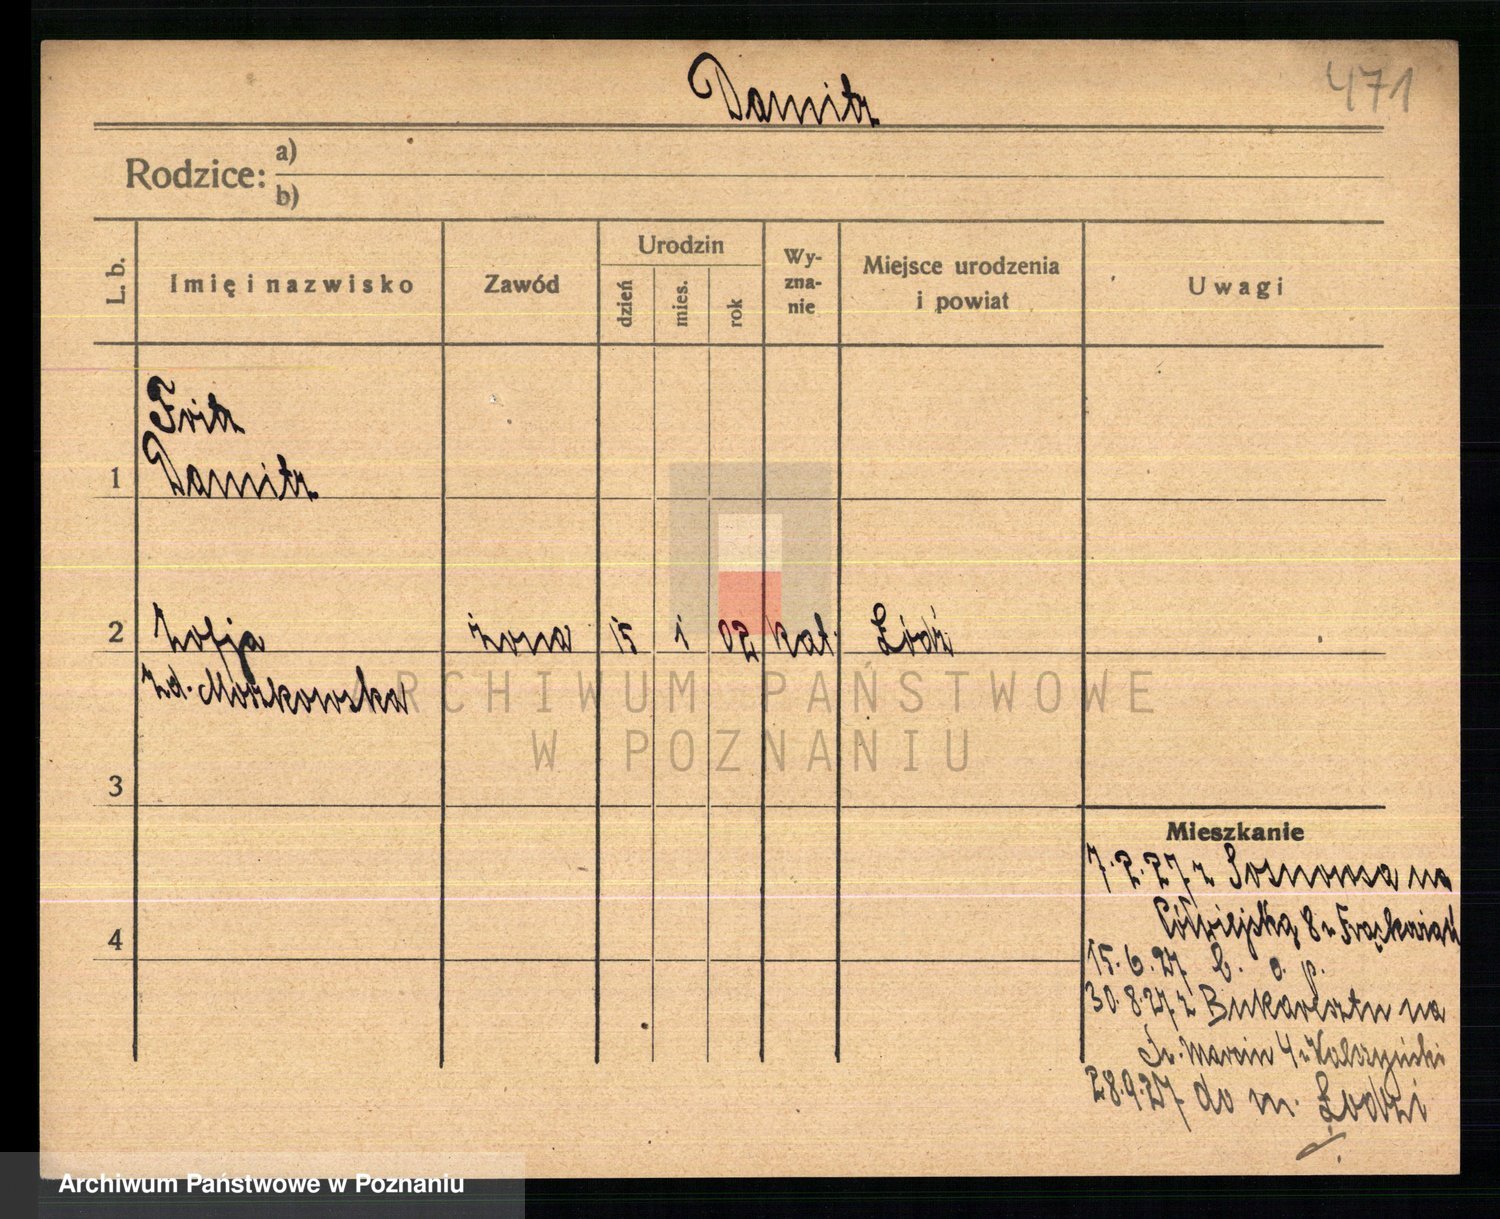 Damitz
471
Rodzice:
a)
b)
L. b.
Imię i nazwisko
Zawód
Urodzin
dzień
mies.
rok
Wy-
zna-
nie
Miejsce urodzenia
i powiat
Uwagi
Fritz
Damitz
1
2 Zofja żona 15 1 02 kat. Łódź
zd.
ARCHIWUM PAŃSTWOWE
W POZNANIU
3
Mieszkanie
7.2.27 z Sosnowca na
8
4
15.6.27 b. o. p.
30.8.27 z Bukaresztu na
Św. Marcin 4
28.9.27 do m. Łodzi
Archiwum Państwowe w Poznaniu